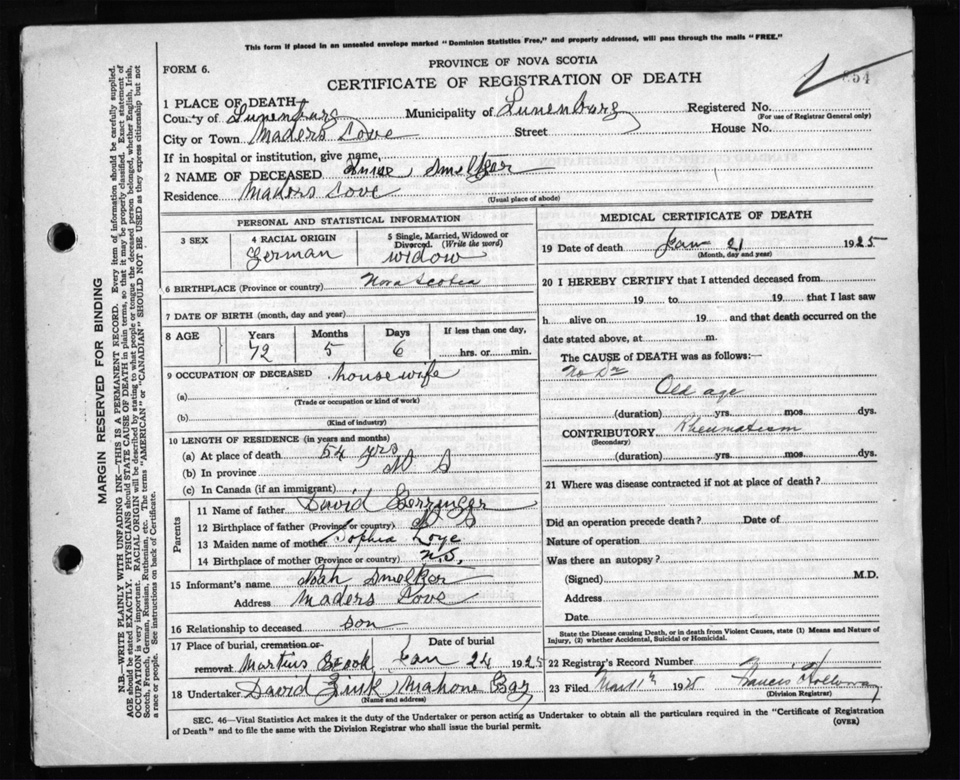 This form if placed in an unsealed envelope marked "Dominion Statistics Free," and properly addressed, will pass through the mails "FREE."
PROVINCE OF NOVA SCOTIA
FORM 6.
CERTIFICATE OF REGISTRATION OF DEATH
54
1 PLACE OF DEATH
County of Lunenburg Municipality of Lunenburg Registered No.
(For use of Registrar General only)
City or Town Maders Cove Street House No.
If in hospital or institution, give name,
2 NAME OF DECEASED Smelzer
Residence Maders Cove
(Usual place of abode)
PERSONAL AND STATISTICAL INFORMATION
3 SEX 4 RACIAL ORIGIN 5 Single, Married, Widowed or Divorced. (Write the word)
German widow
6 BIRTHPLACE (Province or country) Nova Scotia
7 DATE OF BIRTH (month, day and year)
8 AGE Years Months Days If less than one day,
72 5 6 hrs. or min.
9 OCCUPATION OF DECEASED housewife
(a)
(Trade or occupation or kind of work)
(b)
(Kind of industry)
10 LENGTH OF RESIDENCE (in years and months)
(a) At place of death 54 yrs
(b) In province N S
(c) In Canada (if an immigrant)
Parents
11 Name of father David
12 Birthplace of father (Province or country) N S
13 Maiden name of mother Sophia
14 Birthplace of mother (Province or country) N.S.
15 Informant's name Noah Smelzer
Address Maders Cove
16 Relationship to deceased son
17 Place of burial, cremation or removal Date of burial
Martins Brook Jan 24 1925
18 Undertaker David Zink Mahone Bay
(Name and address)
MEDICAL CERTIFICATE OF DEATH
19 Date of death Jan 21 1925
(Month, day and year)
20 I HEREBY CERTIFY that I attended deceased from
19 to 19 that I last saw
h alive on 19 and that death occurred on the
date stated above, at m.
The CAUSE of DEATH was as follows:—
No Dr
Old age
(duration) yrs. mos. dys.
CONTRIBUTORY Rheumatism
(Secondary)
(duration) yrs. mos. dys.
21 Where was disease contracted if not at place of death?
Did an operation precede death? Date of
Nature of operation
Was there an autopsy?
(Signed) M.D.
Address
Date
State the Disease causing Death, or in death from Violent Causes, state (1) Means and Nature of
Injury, (2) whether Accidental, Suicidal or Homicidal.
22 Registrar's Record Number
23 Filed 19 Francis Holloway
(Division Registrar)
SEC. 46—Vital Statistics Act makes it the duty of the Undertaker or person acting as Undertaker to obtain all the particulars required in the "Certificate of Registration
of Death" and to file the same with the Division Registrar who shall issue the burial permit.
(OVER)
MARGIN RESERVED FOR BINDING
N.B.—WRITE PLAINLY WITH UNFADING INK—THIS IS A PERMANENT RECORD. Every item of information should be carefully supplied.
AGE should be stated EXACTLY. PHYSICIANS should STATE CAUSE OF DEATH in plain terms, so that it may be properly classified. Exact statement of
OCCUPATION is very important. RACIAL ORIGIN will be described by stating to what people or tongue the deceased person belonged, whether English, Irish,
Scotch, French, German, Russian, Ruthenian, etc. The terms "AMERICAN" or "CANADIAN" SHOULD NOT BE USED as they express citizenship but not
a race or people. See instructions on back of Certificate.